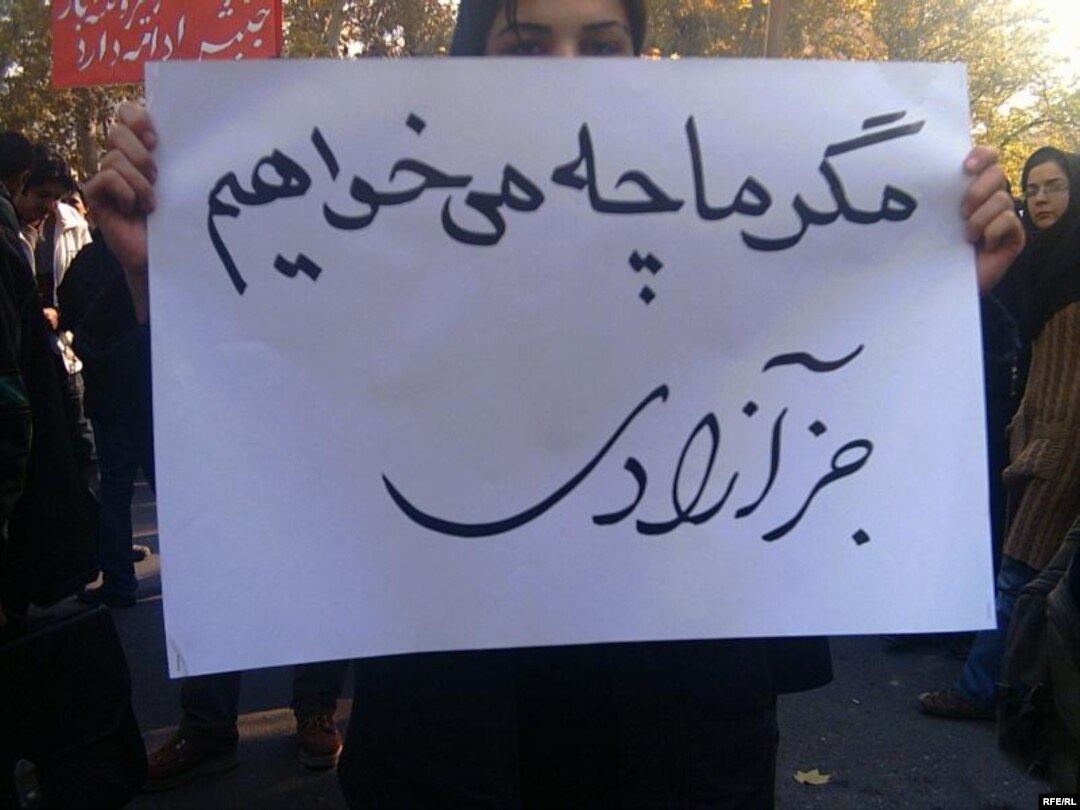 جنبش ادامه دارد
مگر ما چه می‌خواهیم
جز آزادی
RFE/RL